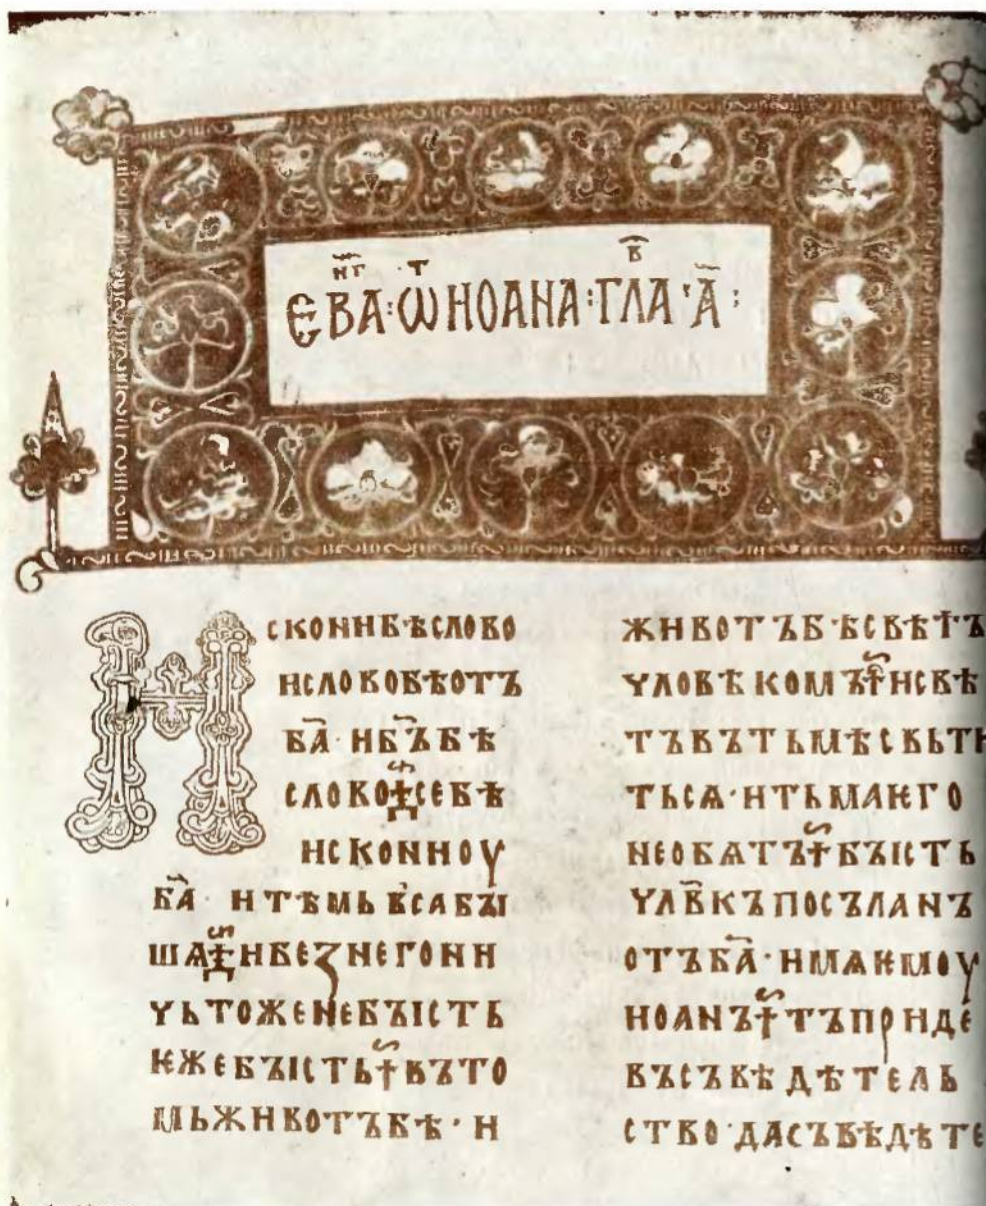 ЄВА҃НГ:ѠТ ИОАНА:ГЛА҃В·А҃:
ИСКОНИБѢСЛОВО
ИСЛОВОБѢОТЪ
БА҃·ИБЪ҃БѢ
СЛОВО☩СЕБѢ
ИСКОНИОУ
БА҃·ИТѢМЬВЬСАБꙐ
ШѦ☩ИБЕЗНЕГОНИ
ЧЬТОЖЕНЕБꙐСТЬ
ѤЖЕБꙐСТЬ☩ВЪТО
МЬЖИВОТЪБѢ·И
ЖИВОТЪБѢСВѢТЪ
ЧЛОВѢКОМЪ☩ИСВѢ
ТЪВЪТЬМѢСВЬТИ
ТЬСѦ·ИТЬМАѤГО
НЕОБѦТЪ☩БꙐСТЬ
ЧЛВ҃КЪПОСЪЛАНЪ
ОТЪБА҃·ИМѦѤМОУ
ИОАНЪ☩ТЪПРИДЕ
ВЪСЪВѢДѢТЕЛЬ
СТВО·ДАСЪВѢДѢТЕ